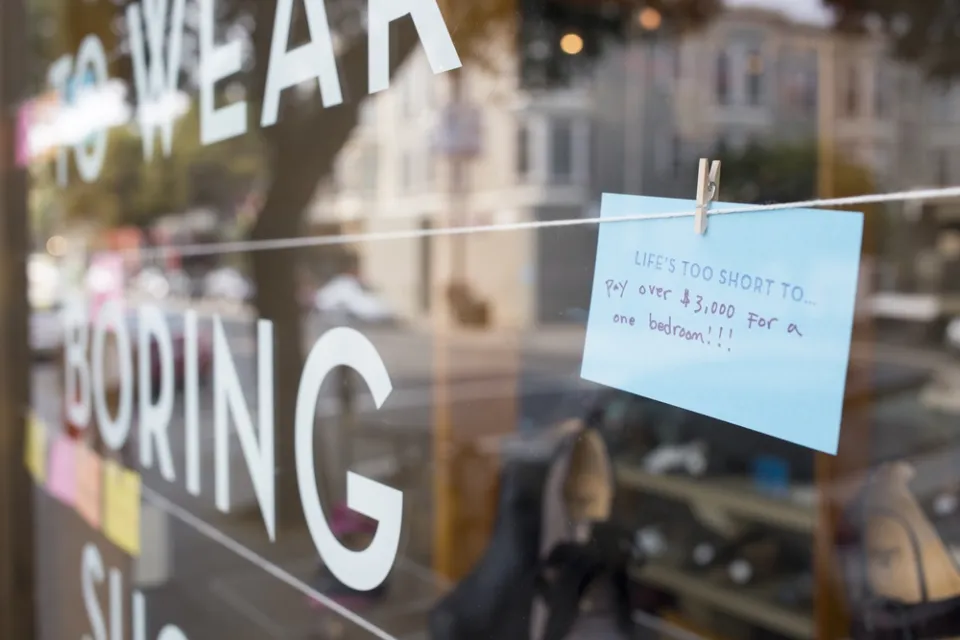 TO WEAR
BORING
LIFE'S TOO SHORT TO...
pay over $3,000 For a
one bedroom!!!